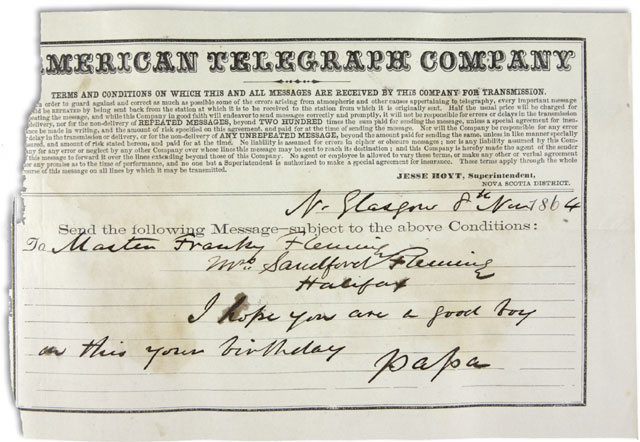 AMERICAN TELEGRAPH COMPANY
TERMS AND CONDITIONS ON WHICH THIS AND ALL MESSAGES ARE RECEIVED BY THIS COMPANY FOR TRANSMISSION.
In order to guard against and correct as much as possible some of the errors arising from atmospheric and other causes appertaining to telegraphy, every important message
should be REPEATED by being sent back from the station at which it is to be received to the station from which it is originally sent. Half the usual price will be charged for
repeating the message, and while this Company in good faith will endeavor to send messages correctly and promptly, it will not be responsible for errors or delays in the transmission
delivery, nor for the non-delivery of REPEATED MESSAGES, beyond TWO HUNDRED times the sum paid for sending the message, unless a special agreement for
ance be made in writing, and the amount of risk specified on this agreement, and paid for at the time of sending the message. Nor will the Company be responsible for any error
delay in the transmission or delivery, or for the non-delivery of ANY UNREPEATED MESSAGE, beyond the amount paid for sending the same, unless in like manner specially
sured, and amount of risk stated hereon, and paid for at the time. No liability is assumed for errors in cipher or obscure messages; nor is any liability assumed by this Com-
any for any error or neglect by any other Company over whose lines this message may be sent to reach its destination; and this Company is hereby made the agent of the sender
this message to forward it over the lines extending beyond those of this Company. No agent or employee is allowed to vary these terms, or make any other or verbal agreement
or any promise as to the time of performance, and no one but a Superintendent is authorized to make a special agreement for insurance. These terms apply through the whole
course of this message on all lines by which it may be transmitted.
JESSE HOYT, Superintendent,
NOVA SCOTIA DISTRICT.
N. Glasgow 8th Nov 1864
Send the following Message subject to the above Conditions:
To Master Franky Fleming
Mrs Sandford Fleming
Halifax
I hope you are a good boy
on this your birthday
papa